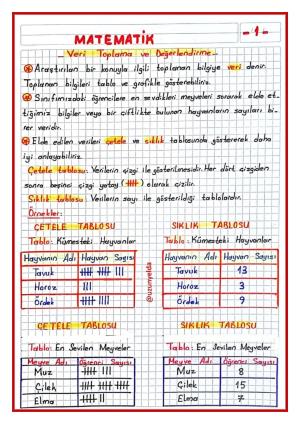 MATEMATİK
- 1 -
Veri Toplama ve Değerlendirme
Araştırılan bir konuyla ilgili toplanan bilgiye veri denir.
Toplanan bilgileri tablo ve grafikle gösterebiliriz.
Sınıfımızdaki öğrencilere en sevdikleri meyveleri sorarak elde et-
tiğimiz bilgiler veya bir çiftlikte bulunan hayvanların sayıları bi-
rer veridir.
Elde edilen verileri çetele ve sıklık tablosunda göstererek daha
iyi anlayabiliriz.
Çetele tablosu: Verilerin çizgi ile gösterilmesidir. Her dört çizgiden
sonra beşinci çizgi yatay (卌) olarak çizilir.
Sıklık tablosu: Verilerin sayı ile gösterildiği tablolardır.
Örnekler:
ÇETELE TABLOSU
Tablo: Kümesteki Hayvanlar
Hayvanın Adı Hayvan Sayısı
Tavuk 卌 卌 III
Horoz III
Ördek 卌 IIII
SIKLIK TABLOSU
Tablo: Kümesteki Hayvanlar
Hayvanın Adı Hayvan Sayısı
Tavuk 13
Horoz 3
Ördek 9
@uzunyelda
ÇETELE TABLOSU
Tablo: En Sevilen Meyveler
Meyve Adı Öğrenci Sayısı
Muz 卌 III
Çilek 卌 卌 卌
Elma 卌 II
SIKLIK TABLOSU
Tablo: En Sevilen Meyveler
Meyve Adı Öğrenci Sayısı
Muz 8
Çilek 15
Elma 7